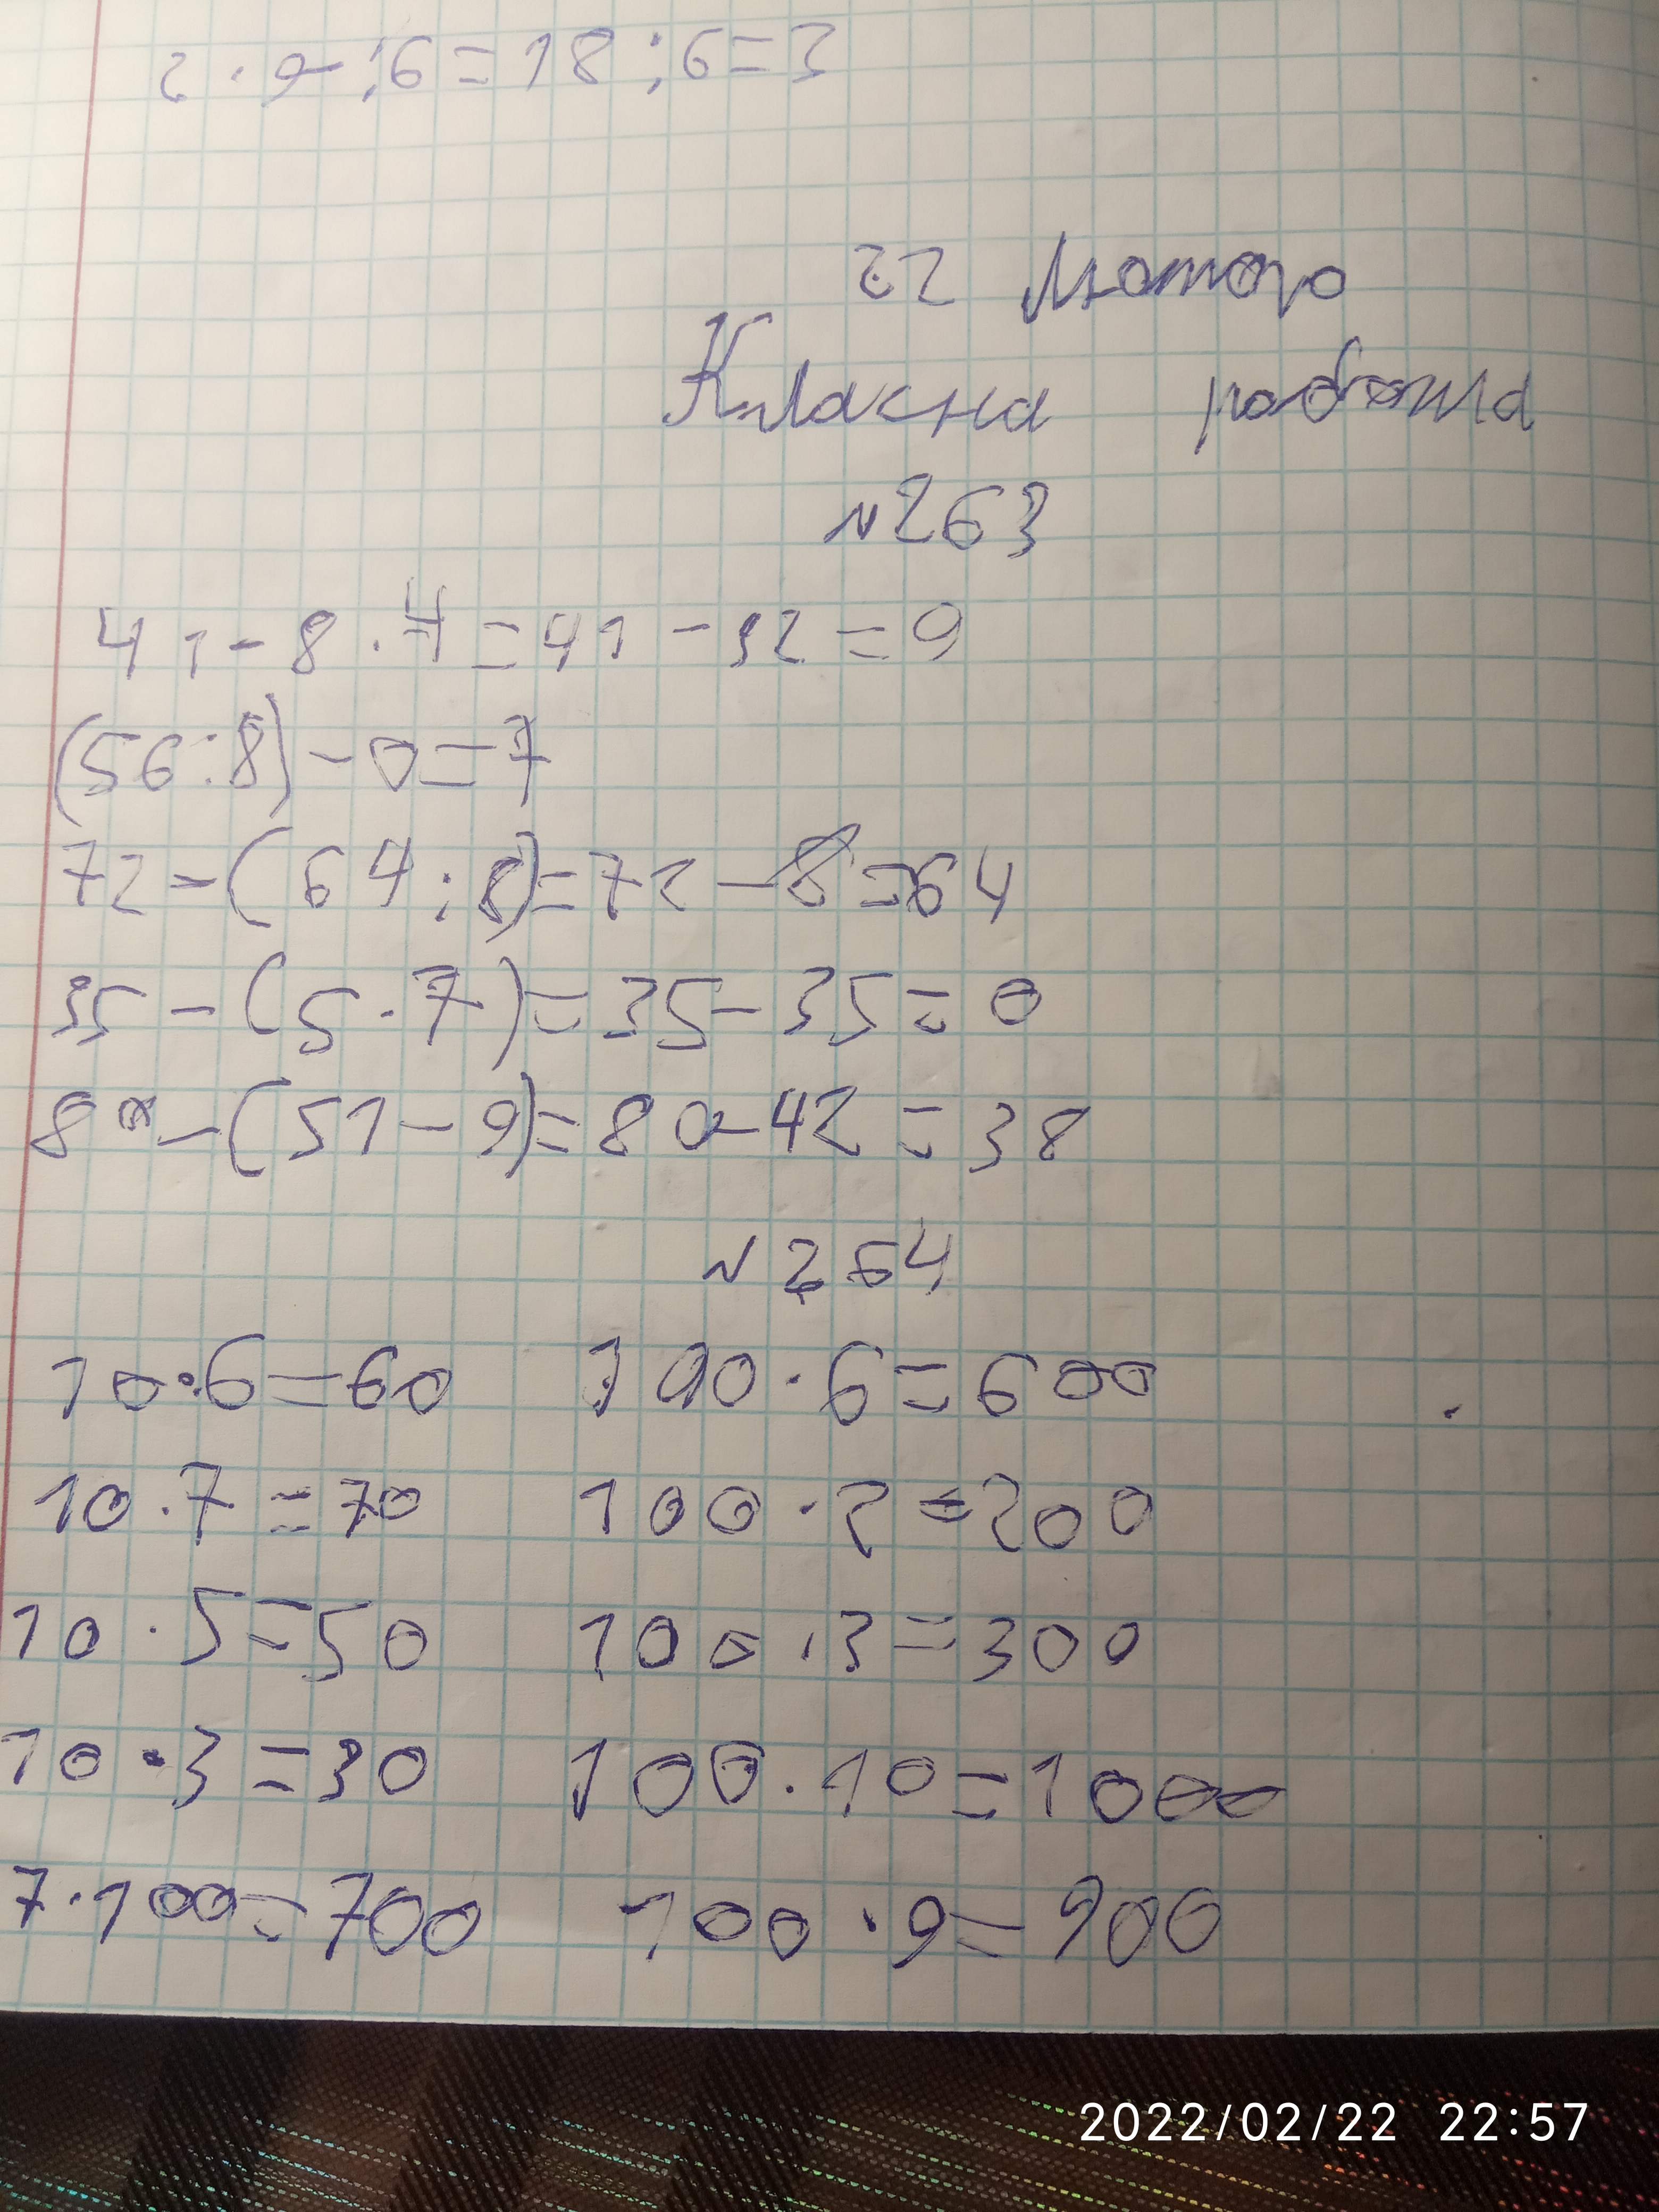 2 · 9 : 6 = 18 : 6 = 3
22 лютого
Класна робота
№263
41 - 8 · 4 = 41 - 32 = 9
(56 : 8) - 0 = 7
72 - (64 : 8) = 72 - 8 = 64
35 - (5 · 7) = 35 - 35 = 0
80 - (51 - 9) = 80 - 42 = 38
№264
10 · 6 = 60 100 · 6 = 600
10 · 7 = 70 100 · 2 = 200
10 · 5 = 50 100 · 3 = 300
10 · 3 = 30 100 · 10 = 1000
7 · 100 = 700 100 · 9 = 900
2022/02/22 22:57